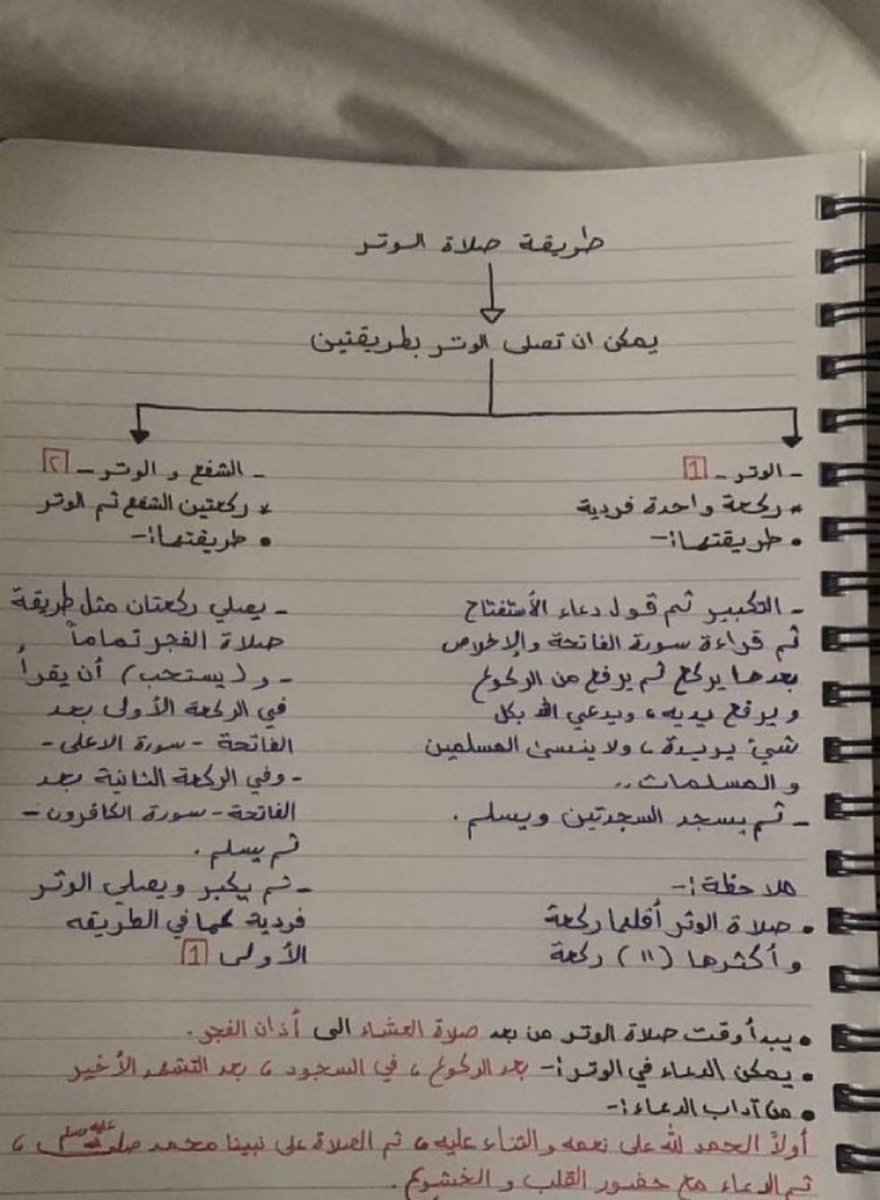 طريقة صلاة الوتر
يمكن ان تصلى الوتر بطريقتين
- الوتر - 1
* ركعة واحدة فردية
• طريقتها:-
- التكبير ثم قول دعاء الأستفتاح
ثم قراءة سورة الفاتحة والإخلاص
بعدها يركع ثم يرفع من الركوع
ويرفع يديه، ويدعي الله بكل
شيئ يريدة، ولا ينسئ المسلمين
والمسلمات..
- ثم يسجد السجدتين ويسلم.
ملاحظة:-
• صلاة الوتر أقلها ركعة
وأكثرها (١١) ركعة
- الشفع و الوتر - ٢
* ركعتين الشفع ثم الوتر
• طريقتها:-
- يصلي ركعتان مثل طريقة
صلاة الفجر تماماً
- و (يستحب) أن يقرأ
في الركعة الأولى بعد
الفاتحة - سورة الاعلى -
- وفي الركعة الثانية بعد
الفاتحة - سورة الكافرون -
ثم يسلم.
- ثم يكبر ويصلي الوتر
فردية كما في الطريقه
الأولى 1
• يبدأ وقت صلاة الوتر من بعد صلاة العشاء الى أذان الفجر.
• يمكن الدعاء في الوتر:- بعد الركوع، في السجود، بعد التشهد الأخير
• من آداب الدعاء:-
أولاً الحمد لله على نعمه والثناء عليه، ثم الصلاة على نبينا محمد صلى الله عليه وسلم،
ثم الدعاء مع حضور القلب و الخشوع.